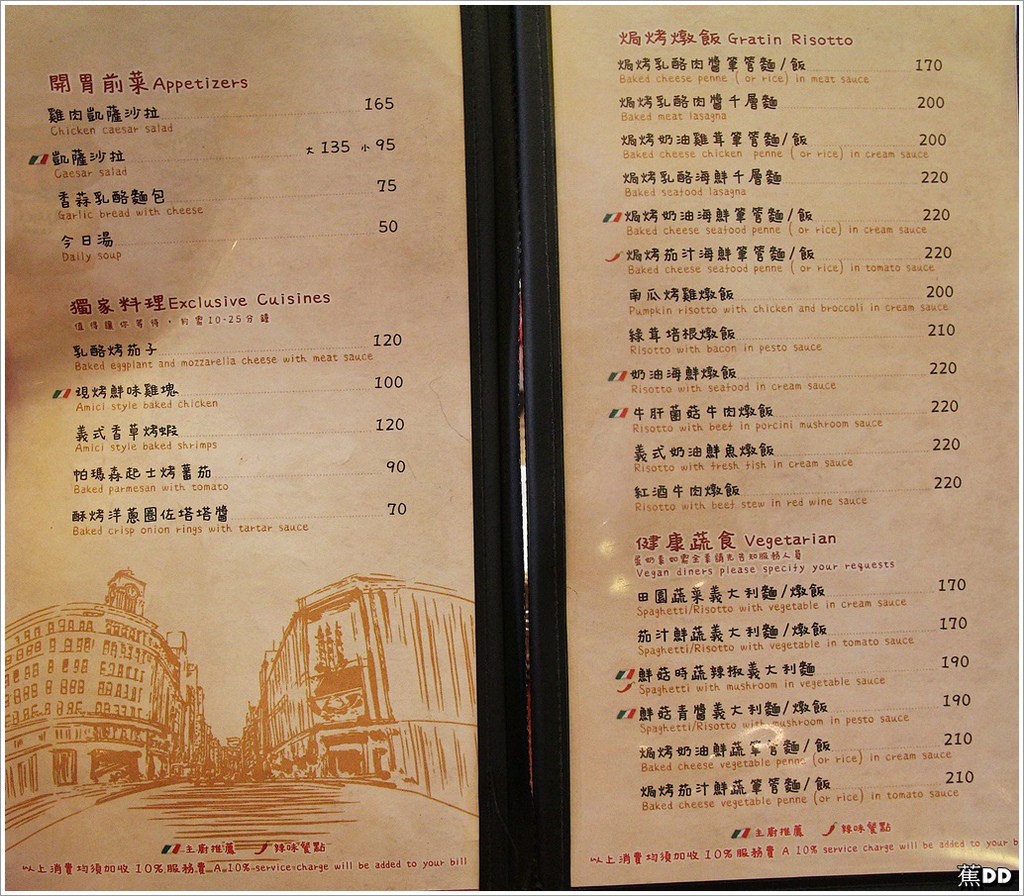 開胃前菜Appetizers
雞肉凱薩沙拉 165
Chicken caesar salad
凱薩沙拉 大 135 小 95
Caesar salad
香蒜乳酪麵包 75
Garlic bread with cheese
今日湯 50
Daily soup
獨家料理Exclusive Cuisines
值得讓你等待，約需10-25分鐘
乳酪烤茄子 120
Baked eggplant and mozzarella cheese with meat sauce
現烤鮮味雞塊 100
Amici style baked chicken
義式香草烤蝦 120
Amici style baked shrimps
帕瑪森起士烤蕃茄 90
Baked parmesan with tomato
酥烤洋蔥圈佐塔塔醬 70
Baked crisp onion rings with tartar sauce
主廚推薦 辣味餐點
以上消費均須加收 10%服務費 A 10% service charge will be added to your bill
焗烤燉飯 Gratin Risotto
焗烤乳酪肉醬筆管麵/飯 170
Baked cheese penne ( or rice) in meat sauce
焗烤乳酪肉醬千層麵 200
Baked meat lasagna
焗烤奶油雞茸筆管麵/飯 200
Baked cheese chicken penne ( or rice) in cream sauce
焗烤乳酪海鮮千層麵 220
Baked seafood lasagna
焗烤奶油海鮮筆管麵/飯 220
Baked cheese seafood penne ( or rice) in cream sauce
焗烤茄汁海鮮筆管麵/飯 220
Baked cheese seafood penne ( or rice) in tomato sauce
南瓜烤雞燉飯 200
Pumpkin risotto with chicken and broccoli in cream sauce
綠茸培根燉飯 210
Risotto with bacon in pesto sauce
奶油海鮮燉飯 220
Risotto with seafood in cream sauce
牛肝菌菇牛肉燉飯 220
Risotto with beef in porcini mushroom sauce
義式奶油鮮魚燉飯 220
Risotto with fresh fish in cream sauce
紅酒牛肉燉飯 220
Risotto with beef stew in red wine sauce
健康蔬食 Vegetarian
蛋奶素如需全素請先告知服務人員
Vegan diners please specify your requests
田園蔬菜義大利麵/燉飯 170
Spaghetti/Risotto with vegetable in cream sauce
茄汁鮮蔬義大利麵/燉飯 170
Spaghetti/Risotto with vegetable in tomato sauce
鮮菇時蔬辣椒義大利麵 190
Spaghetti with mushroom in vegetable sauce
鮮菇青醬義大利麵/燉飯 190
Spaghetti/Risotto with mushroom in pesto sauce
焗烤奶油鮮蔬筆管麵/飯 210
Baked cheese vegetable penne (or rice) in cream sauce
焗烤茄汁鮮蔬筆管麵/飯 210
Baked cheese vegetable penne (or rice) in tomato sauce
主廚推薦 辣味餐點
以上消費均須加收 10%服務費 A 10% service charge will be added to your b
蕉DD